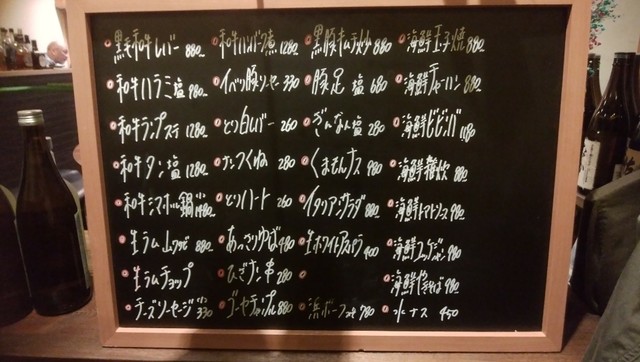 黒毛和牛レバー 880
和牛ハラミ塩 980
和牛ランプステ 1280
和牛タン塩 1280
和牛シマホル鍋 1480
生ラム山ワサビ 880
生ラムチョップ
チーズソーセージ 330
和牛ハンバーグ 1280
イベリコ豚ソーセー 330
とり白レバー 260
ナンコツくね 280
とりハート 260
あっさりゆば 480
ひざナンコツ串 280
ゴーヤチャンプル 880
黒豚キムチ炒 880
豚足 塩 680
ぎんなん塩 280
くまもとナス 980
イタリアンサラダ 880
生ホワイトアスパラ 400
浜ボーフ 780
海鮮玉子焼 880
海鮮チャーハン 880
海鮮ビビンバ 1180
海鮮雑炊 880
海鮮トマトソース 980
海鮮 980
海鮮やきそば 980
水ナス 450